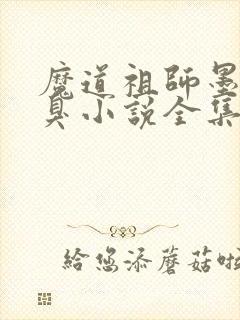 魔道祖師墨
臭小說全集
給您添蘑菇啦